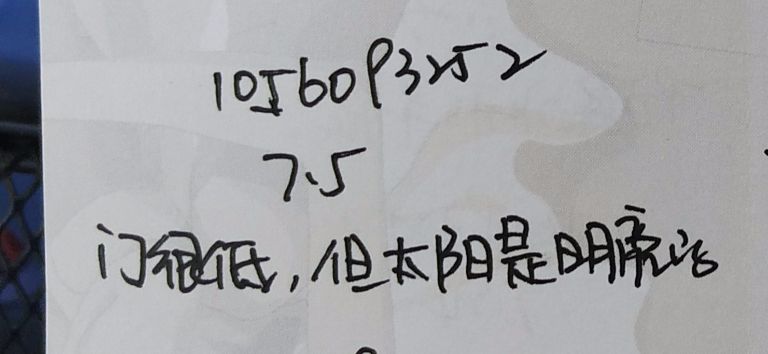 1056093252
7.5
门很低,但太阳是明亮的